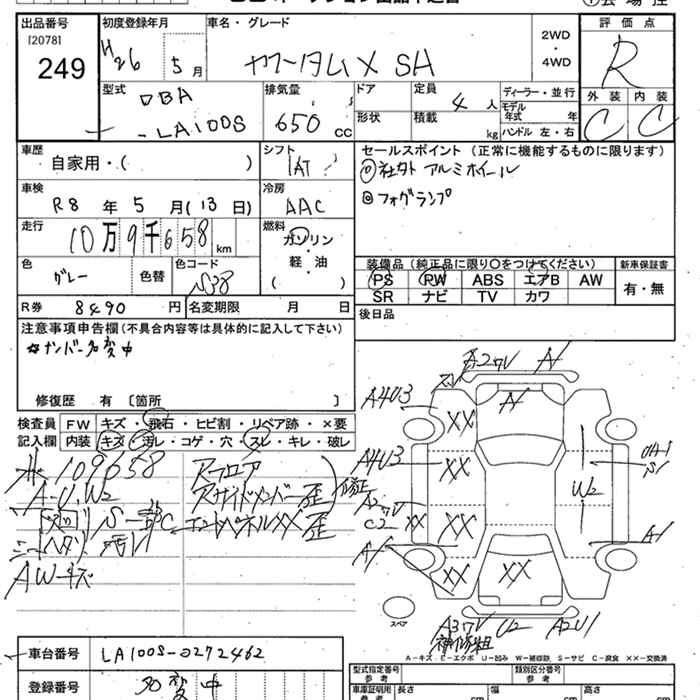 出品番号
[2078]
249
初度登録年月
H26年 5月
車名・グレード
ヤワータム X SA
2WD
・
4WD
評価点
R
外装 内装
C C
型式
DBA
-LA100S
排気量
650 cc
ドア
形状
定員
4人
積載
kg
ディーラー・並行
モデル年式 年
ハンドル 左・右
車歴
自家用・( )
シフト
IAT
セールスポイント(正常に機能するものに限ります)
①社外 アルミホイール
②フォグランプ
車検
R8年 5月(13日)
冷房
AAC
走行
10万9千658km
燃料
ガソリン
・
軽・油
( )
色
グレー
色替
色コード
S38
装備品(純正品に限り○をつけてください)
PS PW ABS エアB AW
SR ナビ TV カワ
新車保証書
有・無
R券 8490円
名変期限 月 日
後日品
注意事項申告欄(不具合内容等は具体的に記入して下さい)
☆ナンバー名変中
修復歴 有 〔箇所 〕
検査員記入欄
FW キズ・飛石・ヒビ割・リペア跡・×要
内装 キズ・汚レ・コゲ・穴・スレ・キレ・破レ
109658
A-U.W2
AWキズ
Rフロア
Rサイドメンバー歪
エンドパネルXX歪
修正
A4U3
A4U3
C2
A1
XX
XX
XX
XX
XX
XX
A1
A1
W2
S1
A1
U2
A2U1
補修粗
スペア
A-キズ E-エクボ U-凹み W-補修跡 S-サビ C-腐食 XX-交換済
車台番号 LA100S-0272462
登録番号 名変中
型式指定番号
参考
類別区分番号
参考
車庫証明用
参考
長さ cm
幅 cm
高さ cm